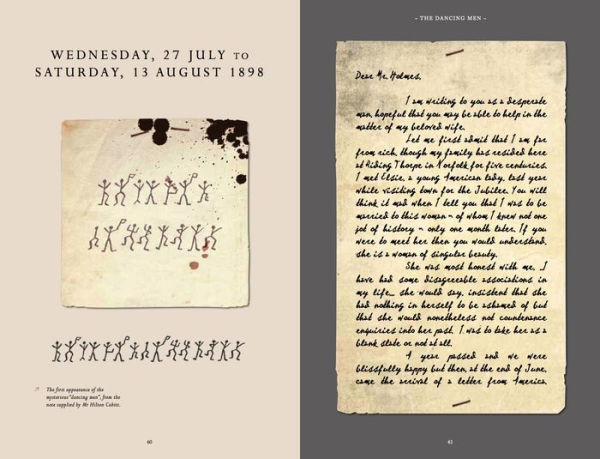 WEDNESDAY, 27 JULY TO
SATURDAY, 13 AUGUST 1898
The first appearance of the
mysterious "dancing men", from the
note supplied by Mr Hilton Cubitt.
60
– THE DANCING MEN –
Dear Mr. Holmes,
I am writing to you as a desperate
man, hopeful that you may be able to help in the
matter of my beloved wife.
Let me first admit that I am far
from rich, though my family has resided here
at Riding Thorpe in Norfolk for five centuries.
I met Elsie, a young American lady, last year
while visiting town for the Jubilee. You will
think it mad when I tell you that I was to be
married to this woman – of whom I knew not one
jot of history – only one month later. If you
were to meet her then you would understand,
she is a woman of singular beauty.
She was most honest with me. I
have had some disagreeable associations in
my life, she would say, insistent that she
had nothing in herself to be ashamed of but
that she would nonetheless not countenance
enquiries into her past. I was to take her as a
blank slate or not at all.
A year passed and we were
blissfully happy but then, at the end of June,
came the arrival of a letter from America,
61